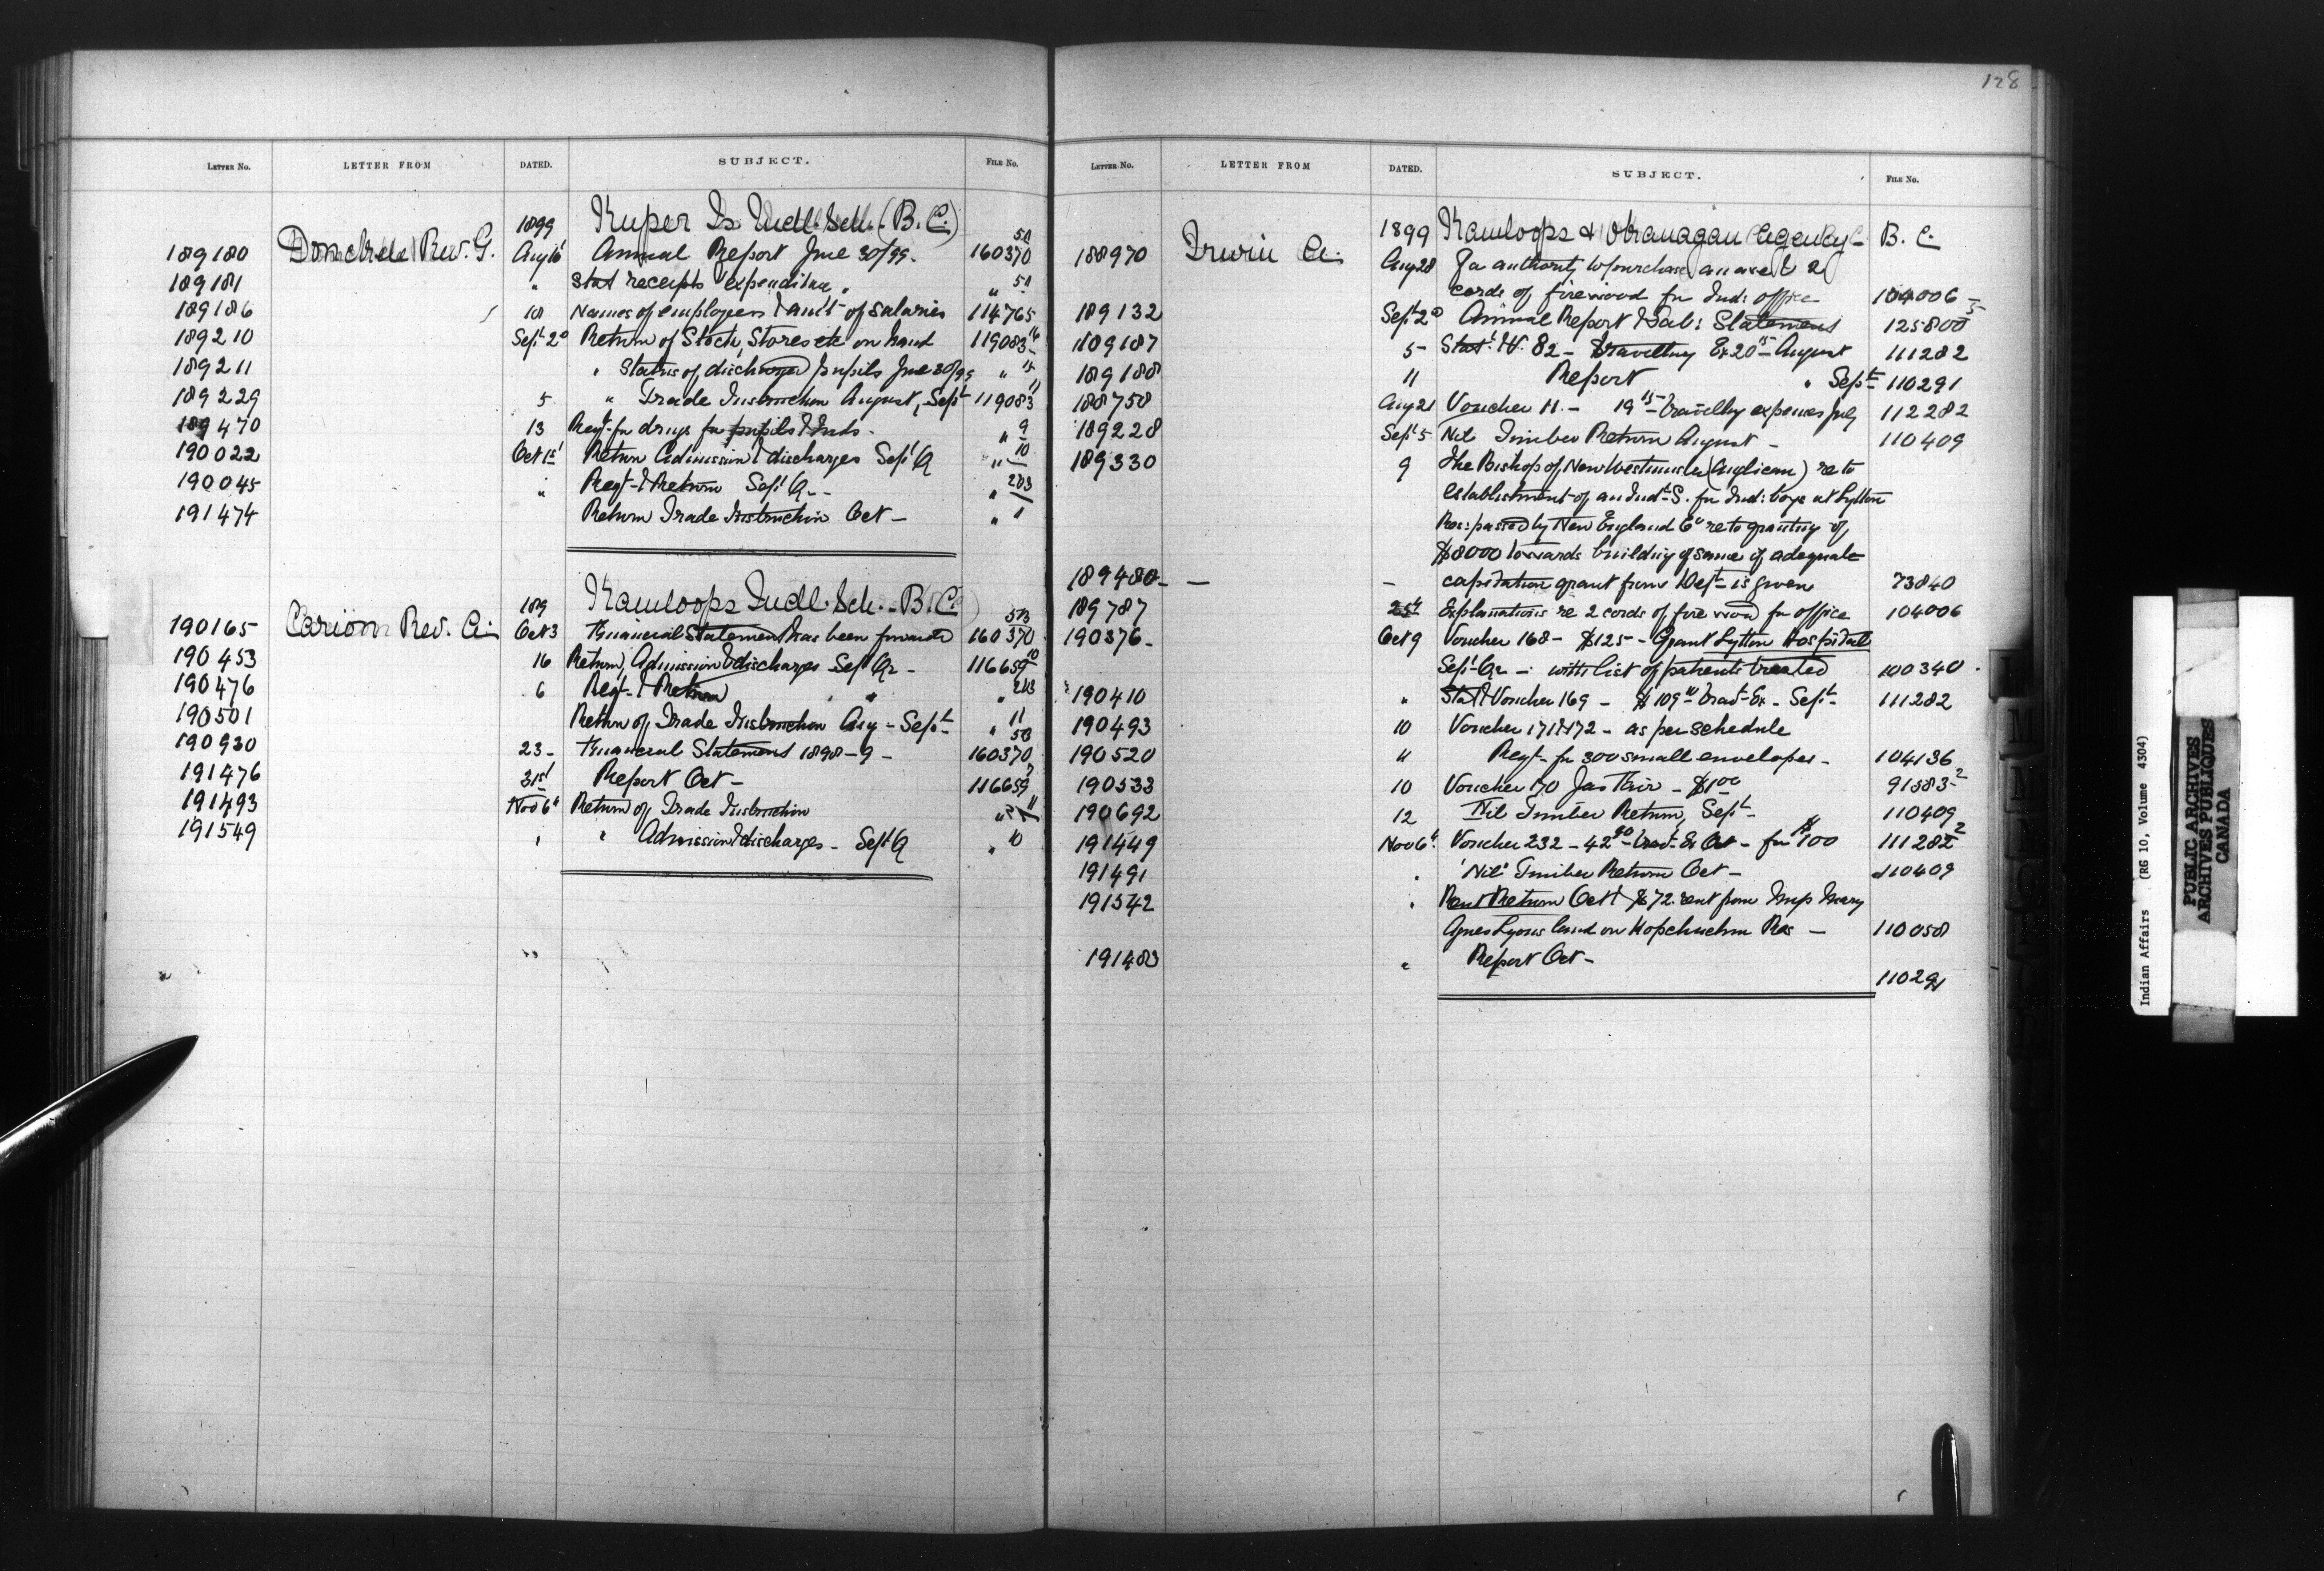 128
LETTER No. LETTER FROM DATED. SUBJECT. FILE No.
1899 Kuper Is Indl. Sch. (B.C.)
189180 Donckele Rev. G. Aug 16 Annual Report June 30/99. 160370 50
189181 " Stat receipts expenditure " " 51
189186 18 Names of employees & amt of salaries 114765
189210 Sept 2d Return of Stock, Stores etc on hand 119083
189211 " Status of discharged pupils June 30/99 " 15
189229 5 " Trade Instruction August, Sept 119083 11
189470 13 Reqt. for drugs for pupils & Inds. " 9
190022 Oct 1st Return Admission & discharges Sept Q " 10
190045 " Reqt. & Return Sept Q - " 203
191474 Return Trade Instruction Oct - " 1
189 Kamloops Indl. Sch. - B.C.
190165 Carion Rev. A. Oct 3 Financial Statement has been forwarded 160370 513
190453 16 Return, Admission & discharges Sept Qr - 116659 10
190476 6 Reqt. & Return " " " 213
190501 Return of Trade Instruction Aug - Sept " 11
190930 23 - Financial Statement 1898-9 - 160370 50
191476 31st Report Oct - 116659 7
191493 Nov 6th Return of Trade Instruction " 11
191549 " " Admission & discharges - Sept Q " 10
LETTER No. LETTER FROM DATED. SUBJECT. FILE No.
1899 Kamloops & Okanagan Agency B.C.
188970 Irwin A. Aug 28 For authority to purchase an axe & 2
cords of firewood for Ind: office 104006
189132 Sept 2d Annual Report & Tab: Statement 125800 5
189187 5 - Stat. & V. 82 - Travelling Ex 20 15 August 111282
189188 11 Report " Sept 110291
188758 Aug 21 Voucher 11. - 19 15 travelling expenses July 112282
189228 Sept 5 Nil Timber Return August - 110409
189330 9 The Bishop of New Westminster (Anglican) re to
establishment of an Indl. S. for Ind: boys at Lytton
Res: passed by New England Co re to granting of
$8000 towards building of same if adequate
189480 - - - capitation grant from Dept is given 73840
189787 25th Explanations re 2 cords of fire wood for office 104006
190376 - Oct 9 Voucher 168 - $125 - Grant Lytton Hospital
Sept Qr - with list of patients treated 100340
190410 " Stat & Voucher 169 - $109 trav Ex - Sept 111282
190493 10 Voucher 171 & 172 - as per schedule
190520 " Reqt - for 300 small envelopes - 104136
190533 10 Voucher 170 Jas - $1 00 91583 2
190692 12 Nil Timber Return, Sept 110409
191449 Nov 6th Voucher 232 - 42 90 - trav Ex Oct - for $100 111282 2
191491 " 'Nil' Timber Return Oct - 110409
191542 " Rent Return Oct & $72. rent from Mary
Agnes Lyons land on Res - 110058
191483 " Report Oct - 110291
Indian Affairs (RG 10, Volume 4304)
PUBLIC ARCHIVES
ARCHIVES PUBLIQUES
CANADA